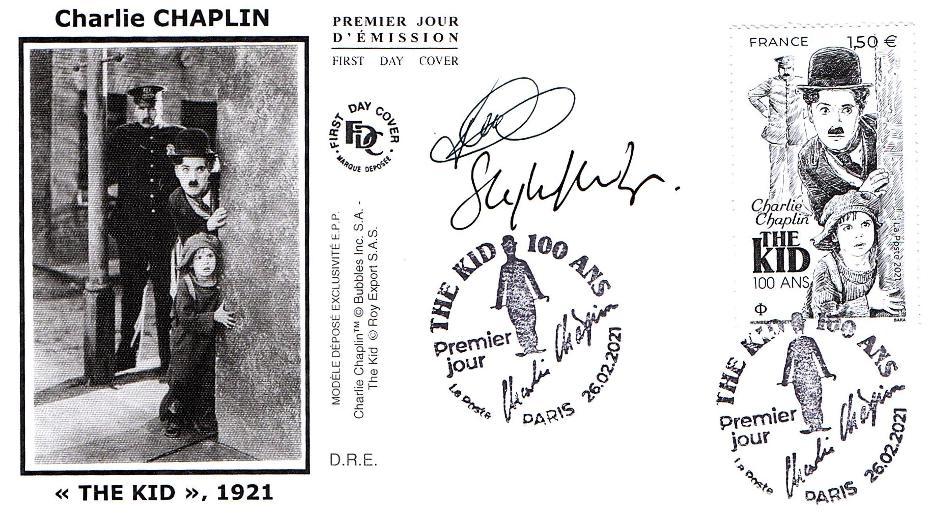 Charlie CHAPLIN
« THE KID », 1921
PREMIER JOUR
D'ÉMISSION
FIRST DAY COVER
FIRST DAY COVER
FDC
• MARQUE DEPOSEE •
MODÈLE DÉPOSÉ EXCLUSIVITÉ E.P.P.
Charlie Chaplin™ © Bubbles Inc. S.A. -
The Kid © Roy Export S.A.S.
D.R.E.
THE KID 100 ANS
Premier
jour
Charlie Chaplin
La Poste
PARIS 26.02.2021
FRANCE 1,50 €
Charlie
Chaplin
THE
KID
100 ANS
La Poste 2021
BARA
THE KID 100 ANS
Premier
jour
Charlie Chaplin
La Poste
PARIS 26.02.2021